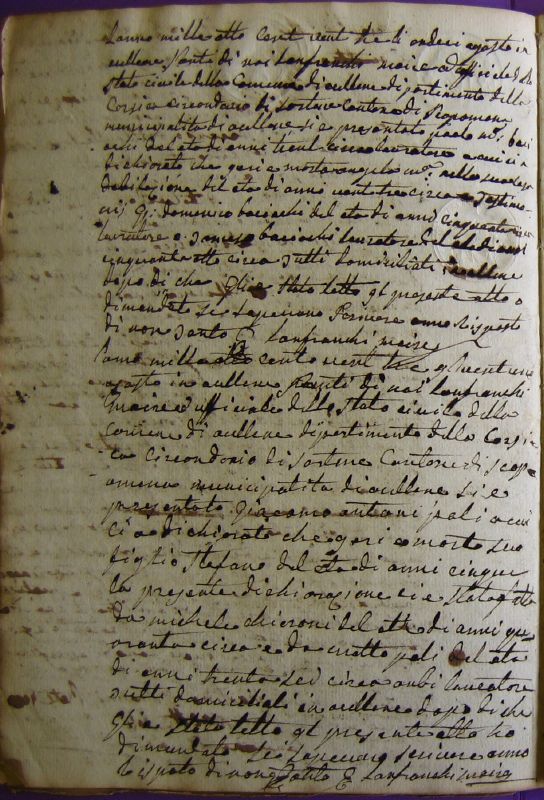 Lanno mille otto cent vent tre li ondeci agosto in
aullene Panti di noi Lanfranchi maire ed ufficiale dello
Stato civile della Comune di aullene dipartimento della
Corsica circondario di Sartene Cantone di Scopamena
municipalita di aullene si e presentato paolo
del eta di anni trent cinque lavratore a noi ci a
dichiarato che geri e morto angelo nella sua
abitazione del eta di anni vent tre circa
domenico baciochi del eta di anni cinquanta
lavratore e baciochi lavratore del eta di anni
cinquanta otto circa tutti domiciliati in aullene
dopo di che gli e stato letto ql presente atto o
dimandato se sapevano scrivere anno risposto
di non santo Lanfranchi maire
Lanno mille otto cento vent tre ql vent
agosto in aullene Panti di noi Lanfranchi
maire ed ufficiale dello stato civile della
comune di aullene dipartimento della Corsi
ca circondario di sartene Cantone di scopa
mena municipalita di aullene si e
presentato giacomo antoni poli a noi
ci a dichiarato che geri e morto suo
figlio Stefano del eta di anni cinque
la presente dichiarazione ci e stata fatta
da michele chieroni del eta di anni qu
aranta circa e da matto poli del eta
di anni trenta sei circa anbi lavratore
tutti domiciliati in aullene dopo di che
gli e stato letto ql presente atto ho
dimandato se sapevano scrivere anno
risposto di non santo Lanfranchi maire